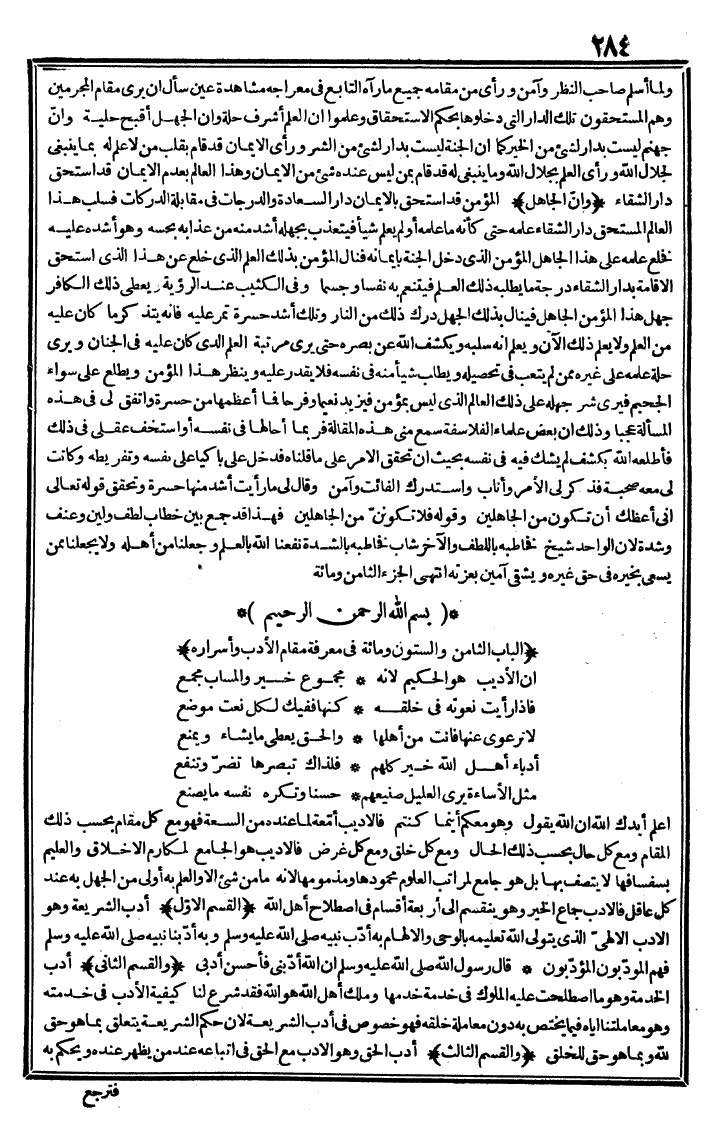 ٢٨٤
ولما أسلم صاحب النظر وآمن ورأى من مقامه جميع ما رآه التابع فى معراجه مشاهدة عين سأل ان يرى مقام المجرمين
وهم المستحقون تلك الدار التى دخلوها بحكم الاستحقاق وعلموا ان العلم أشرف حلة وان الجهل أقبح حلية وانّ
جهنم ليست بدار لشئ من الخير كما ان الجنة ليست بدار لشئ من الشر ورأى الايمان قد قام بقلب من لا علم له بما ينبغى
لجلال الله ورأى العلم بجلال الله وما ينبغى له قد قام بمن ليس عنده شئ من الايمان وهذا العالم بعدم الايمان قد استحق
دار الشقاء ﴿وانّ الجاهل﴾ المؤمن قد استحق بالايمان دار السعادة والدرجات فى مقابلة الدركات فسلب هذا
العالم المستحق دار الشقاء علمه حتى كأنه ما علمه أو لم يعلم شيأ فيتعذب بجهله أشد منه من عذابه بحسه وهو أشده عليه
فخلع علمه على هذا الجاهل المؤمن الذى دخل الجنة بايمانه فنال المؤمن بذلك العلم الذى خلع عن هذا الذى استحق
الاقامة بدار الشقاء درجة ما يطلبه ذلك العلم فيتنعم به نفسا وجسما وفى الكثيب عند الرؤية ويعطى ذلك الكافر
جهل هذا المؤمن الجاهل فينال بذلك الجهل درك ذلك من النار وتلك أشد حسرة تمر عليه فانه يتذكر ما كان عليه
من العلم ولا يعلم ذلك الآن ويعلم انه سلبه ويكشف الله عن بصره حتى يرى مرتبة العلم الذى كان عليه فى الجنان ويرى
حلة علمه على غيره ممن لم يتعب فى تحصيله ويطلب شيأ منه فى نفسه فلا يقدر عليه وينظر هذا المؤمن ويطلع على سواء
الجحيم فيرى شر جهله على ذلك العالم الذى ليس بمؤمن فيزيد نعيما وفرحا فما أعظمها من حسرة واتفق لى فى هذه
المسألة عجبا وذلك ان بعض علماء الفلاسفة سمع منى هذه المقالة فربما أحالها فى نفسه أو استخف عقلى فى ذلك
فأطلعه الله بكشف لم يشك فيه فى نفسه بحيث ان تحقق الامر على ما قلناه فدخل على باكيا على نفسه وتفريطه وكانت
لى معه صحبة فذكر لى الأمر وأناب واستدرك الفائت وآمن وقال لى ما رأيت أشد منها حسرة وتحقق قوله تعالى
انى أعظك أن تكون من الجاهلين وقوله فلا تكوننّ من الجاهلين فهذا قد جمع بين خطاب لطف ولين وعنف
وشدة لان الواحد شيخ فخاطبه باللطف والآخر شاب فخاطبه بالشدة نفعنا الله بالعلم وجعلنا من أهله ولا يجعلنا ممن
يسعى بخيره فى حق غيره ويشقى آمين بعزته انتهى الجزء الثامن ومائة
*( بسم الله الرحمن الرحيم )*
﴿الباب الثامن والستون ومائة فى معرفة مقام الأدب وأسراره﴾
ان الأديب هو الحكيم لانه * مجموع خير والمساب مجمع
فاذا رأيت نعوته فى خلقه * كنها ففيك لكل نعت موضع
لا ترعوى عنها فانت من أهلها * والحق يعطى ما يشاء ويمنع
أدباء أهل الله خير كلهم * فلذاك تبصرها تضرّ وتنفع
مثل الأساءة يرى العليل صنيعهم * حسنا وتكره نفسه ما يصنع
اعلم أيدك الله ان الله يقول وهو معكم أينما كنتم فالاديب أمتعة لما عنده من السعة فهو مع كل مقام بحسب ذلك
المقام ومع كل حال بحسب ذلك الحال ومع كل خلق ومع كل غرض فالاديب هو الجامع لمكارم الاخلاق والعليم
بسفسافها لا يتصف بها بل هو جامع لمراتب العلوم محمودها ومذمومها لانه ما من شئ الا والعلم به أولى من الجهل به عند
كل عاقل فالادب جماع الخير وهو ينقسم الى أربعة أقسام فى اصطلاح أهل الله ﴿القسم الاوّل﴾ أدب الشريعة وهو
الادب الالهىّ الذى يتولى الله تعليمه بالوحى والالهام به أدّب نبيه صلى الله عليه وسلم وبه أدّبنا نبيه صلى الله عليه وسلم
فهم المودبون المؤدّبون * قال رسول الله صلى الله عليه وسلم ان الله أدّبنى فأحسن أدبى ﴿والقسم الثانى﴾ أدب
الخدمة وهو ما اصطلحت عليه الملوك فى خدمة خدمها وملك أهل الله هو الله فقد شرع لنا كيفية الأدب فى خدمته
وهو معاملتنا اياه فيما يختص به دون معاملة خلقه فهو خصوص فى أدب الشريعة لان حكم الشريعة يتعلق بما هو حق
لله وبما هو حق للخلق ﴿والقسم الثالث﴾ أدب الحق وهو الادب مع الحق فى اتباعه عند من يظهر عنده ويحكم به
فترجع